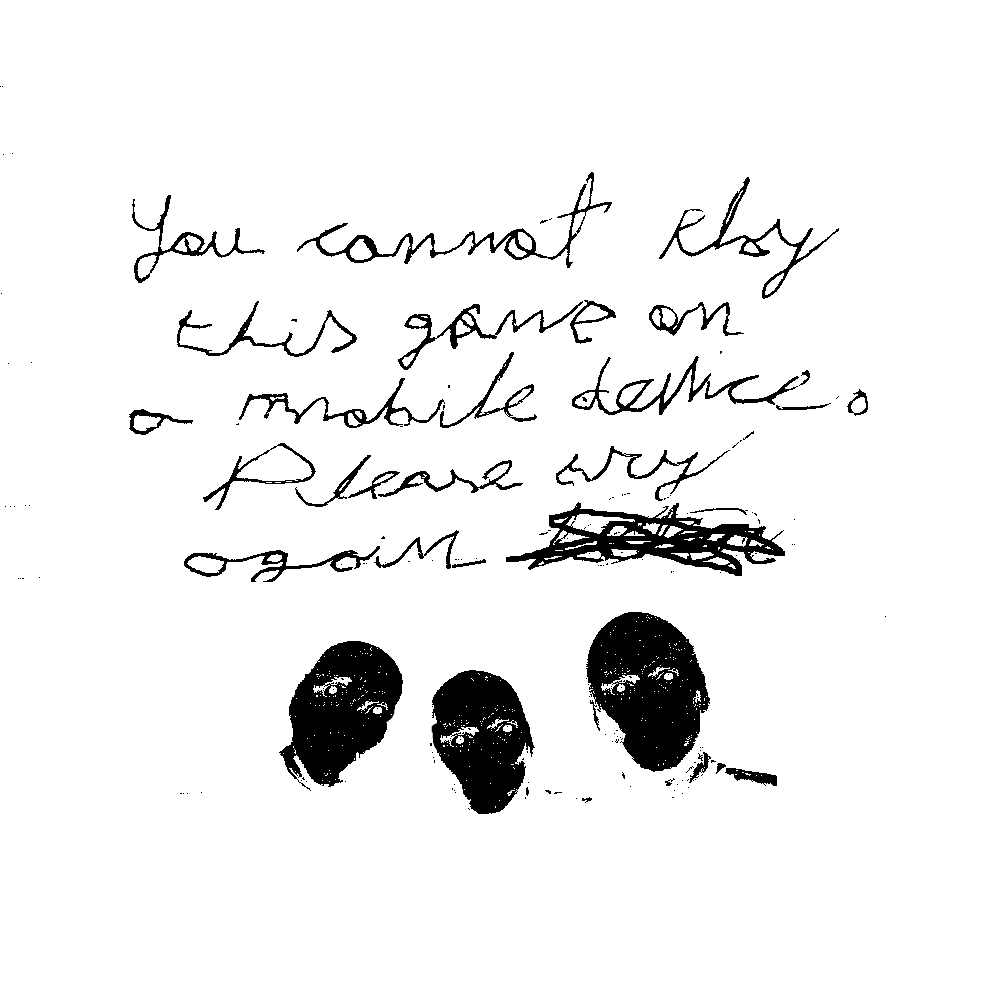 You cannot play
this game on
a mobile device.
Please try
again